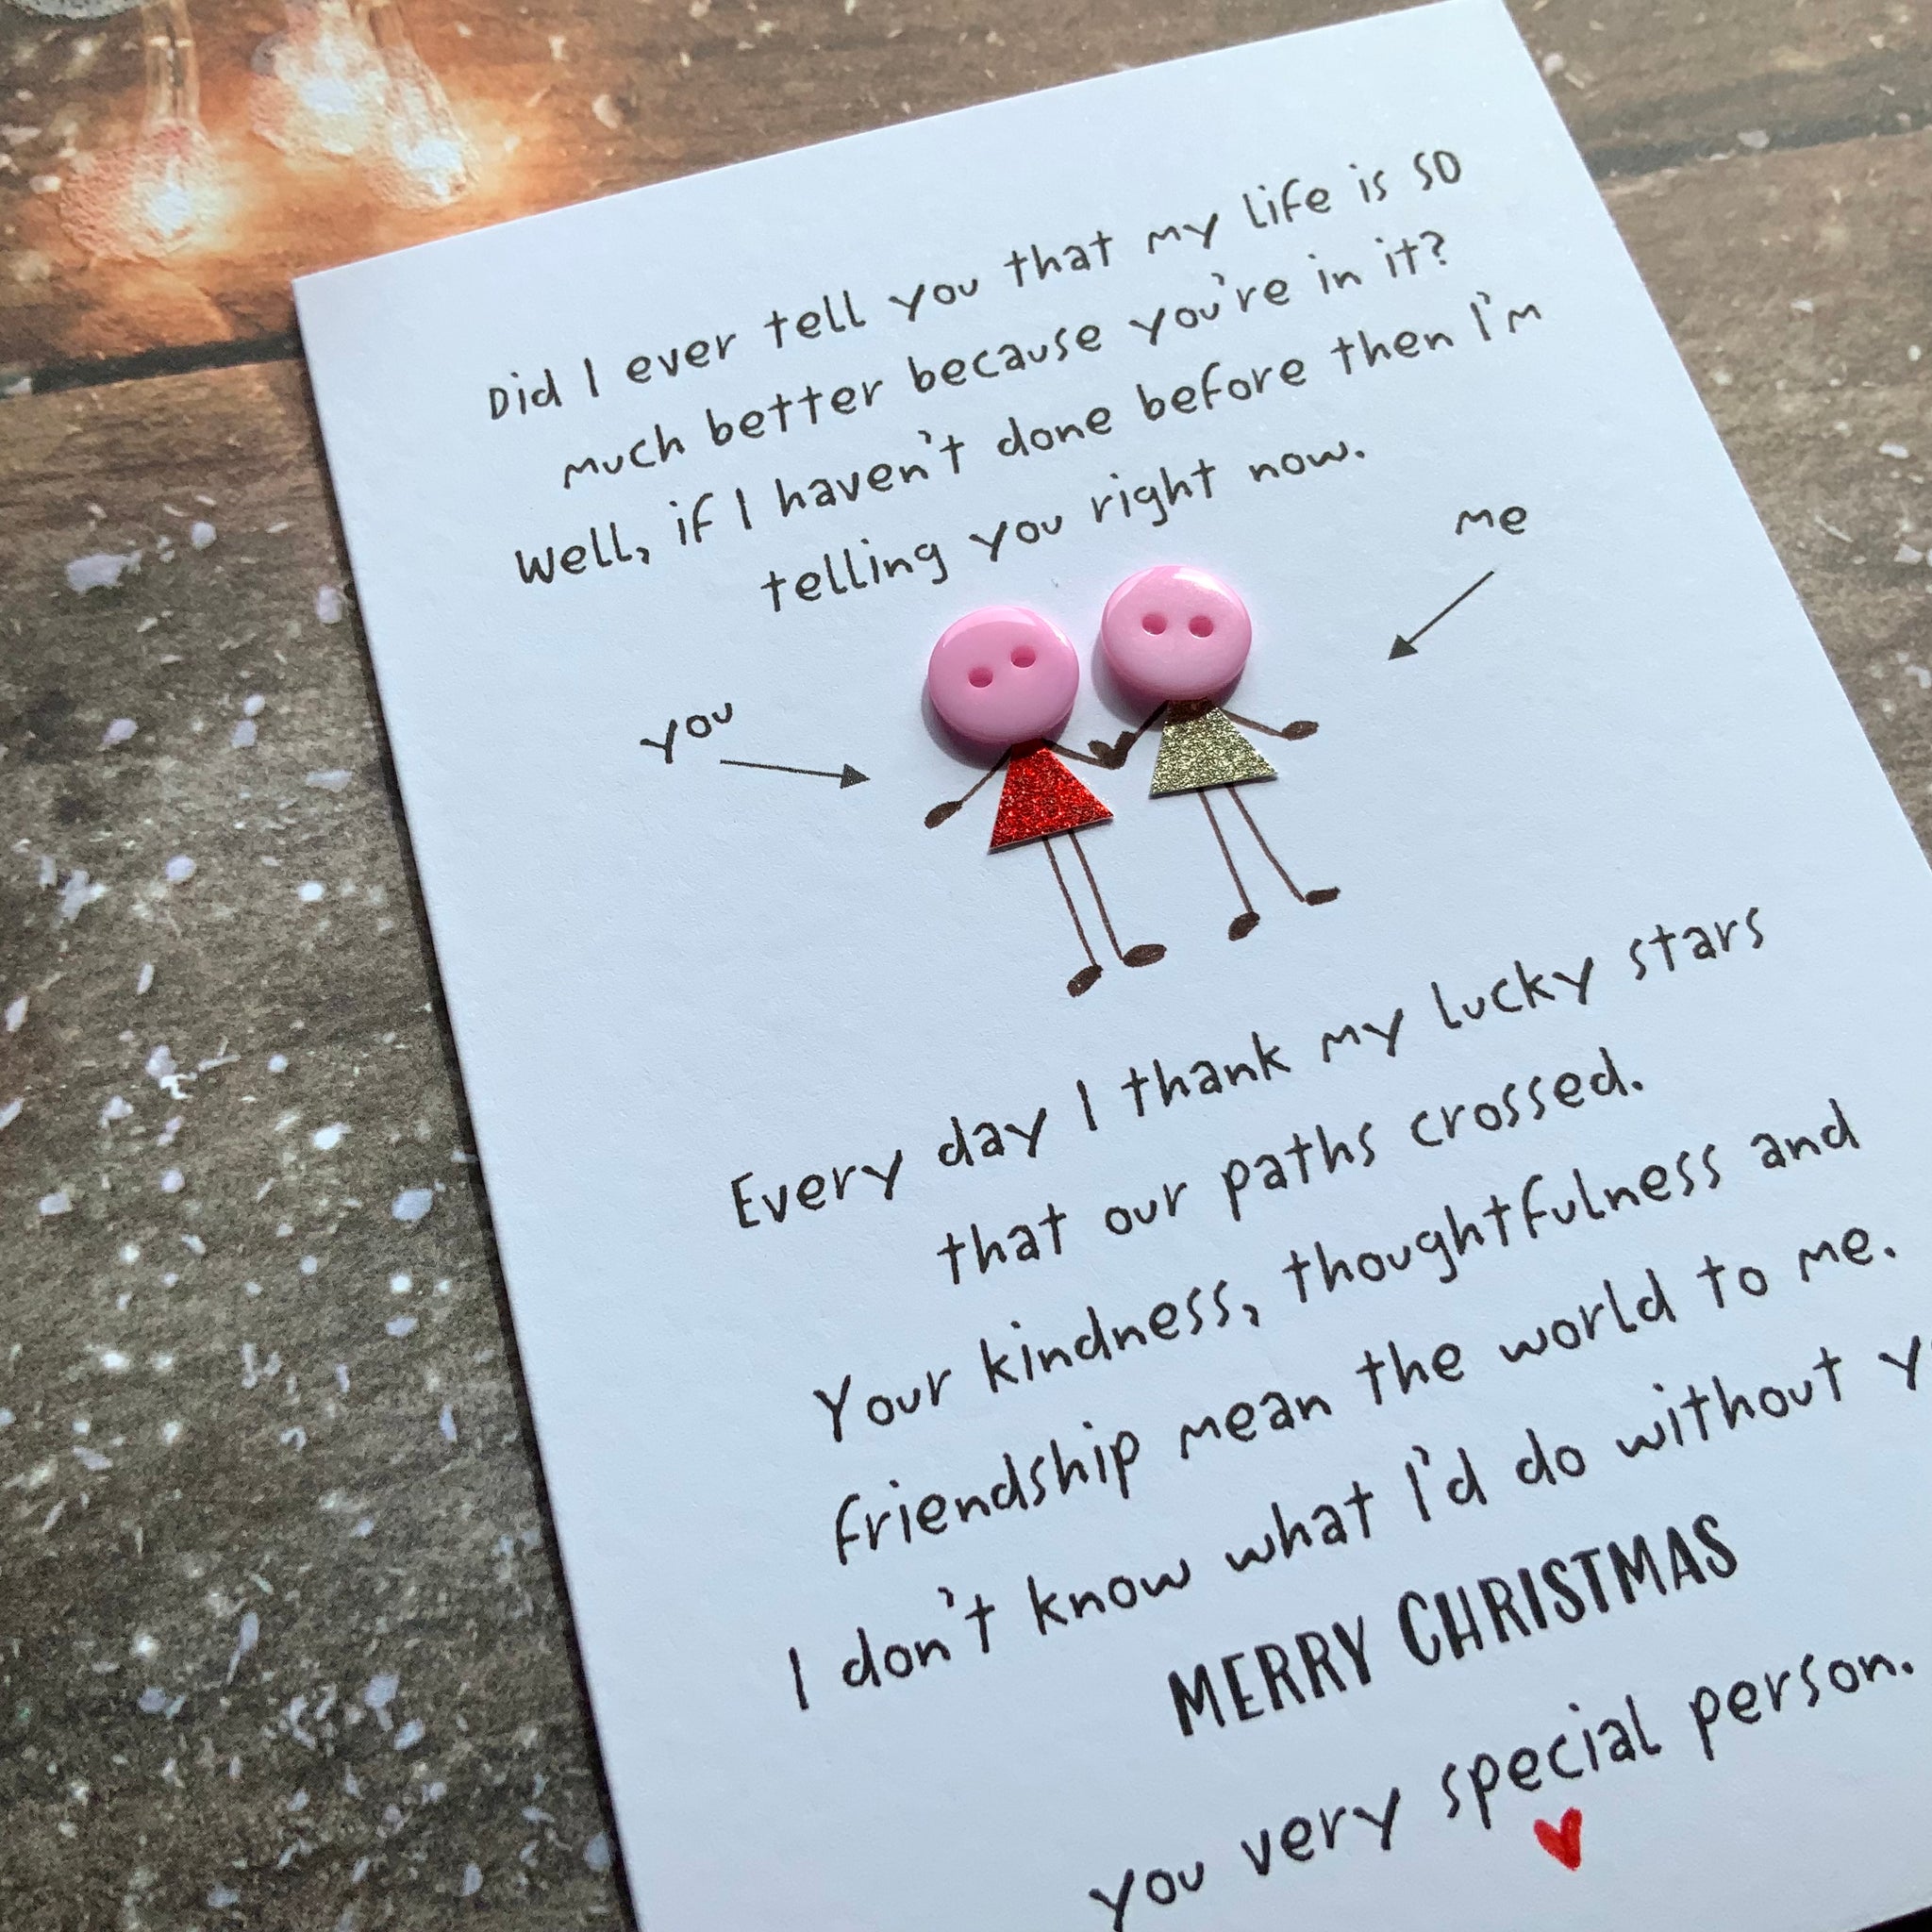 Did I ever tell you that my life is so
much better because you're in it?
Well, if I haven't done before then I'm
telling you right now.
me
you
Every day I thank my lucky stars
that our paths crossed.
Your kindness, thoughtfulness and
friendship mean the world to me.
I don't know what I'd do without
MERRY CHRISTMAS
you very special person.